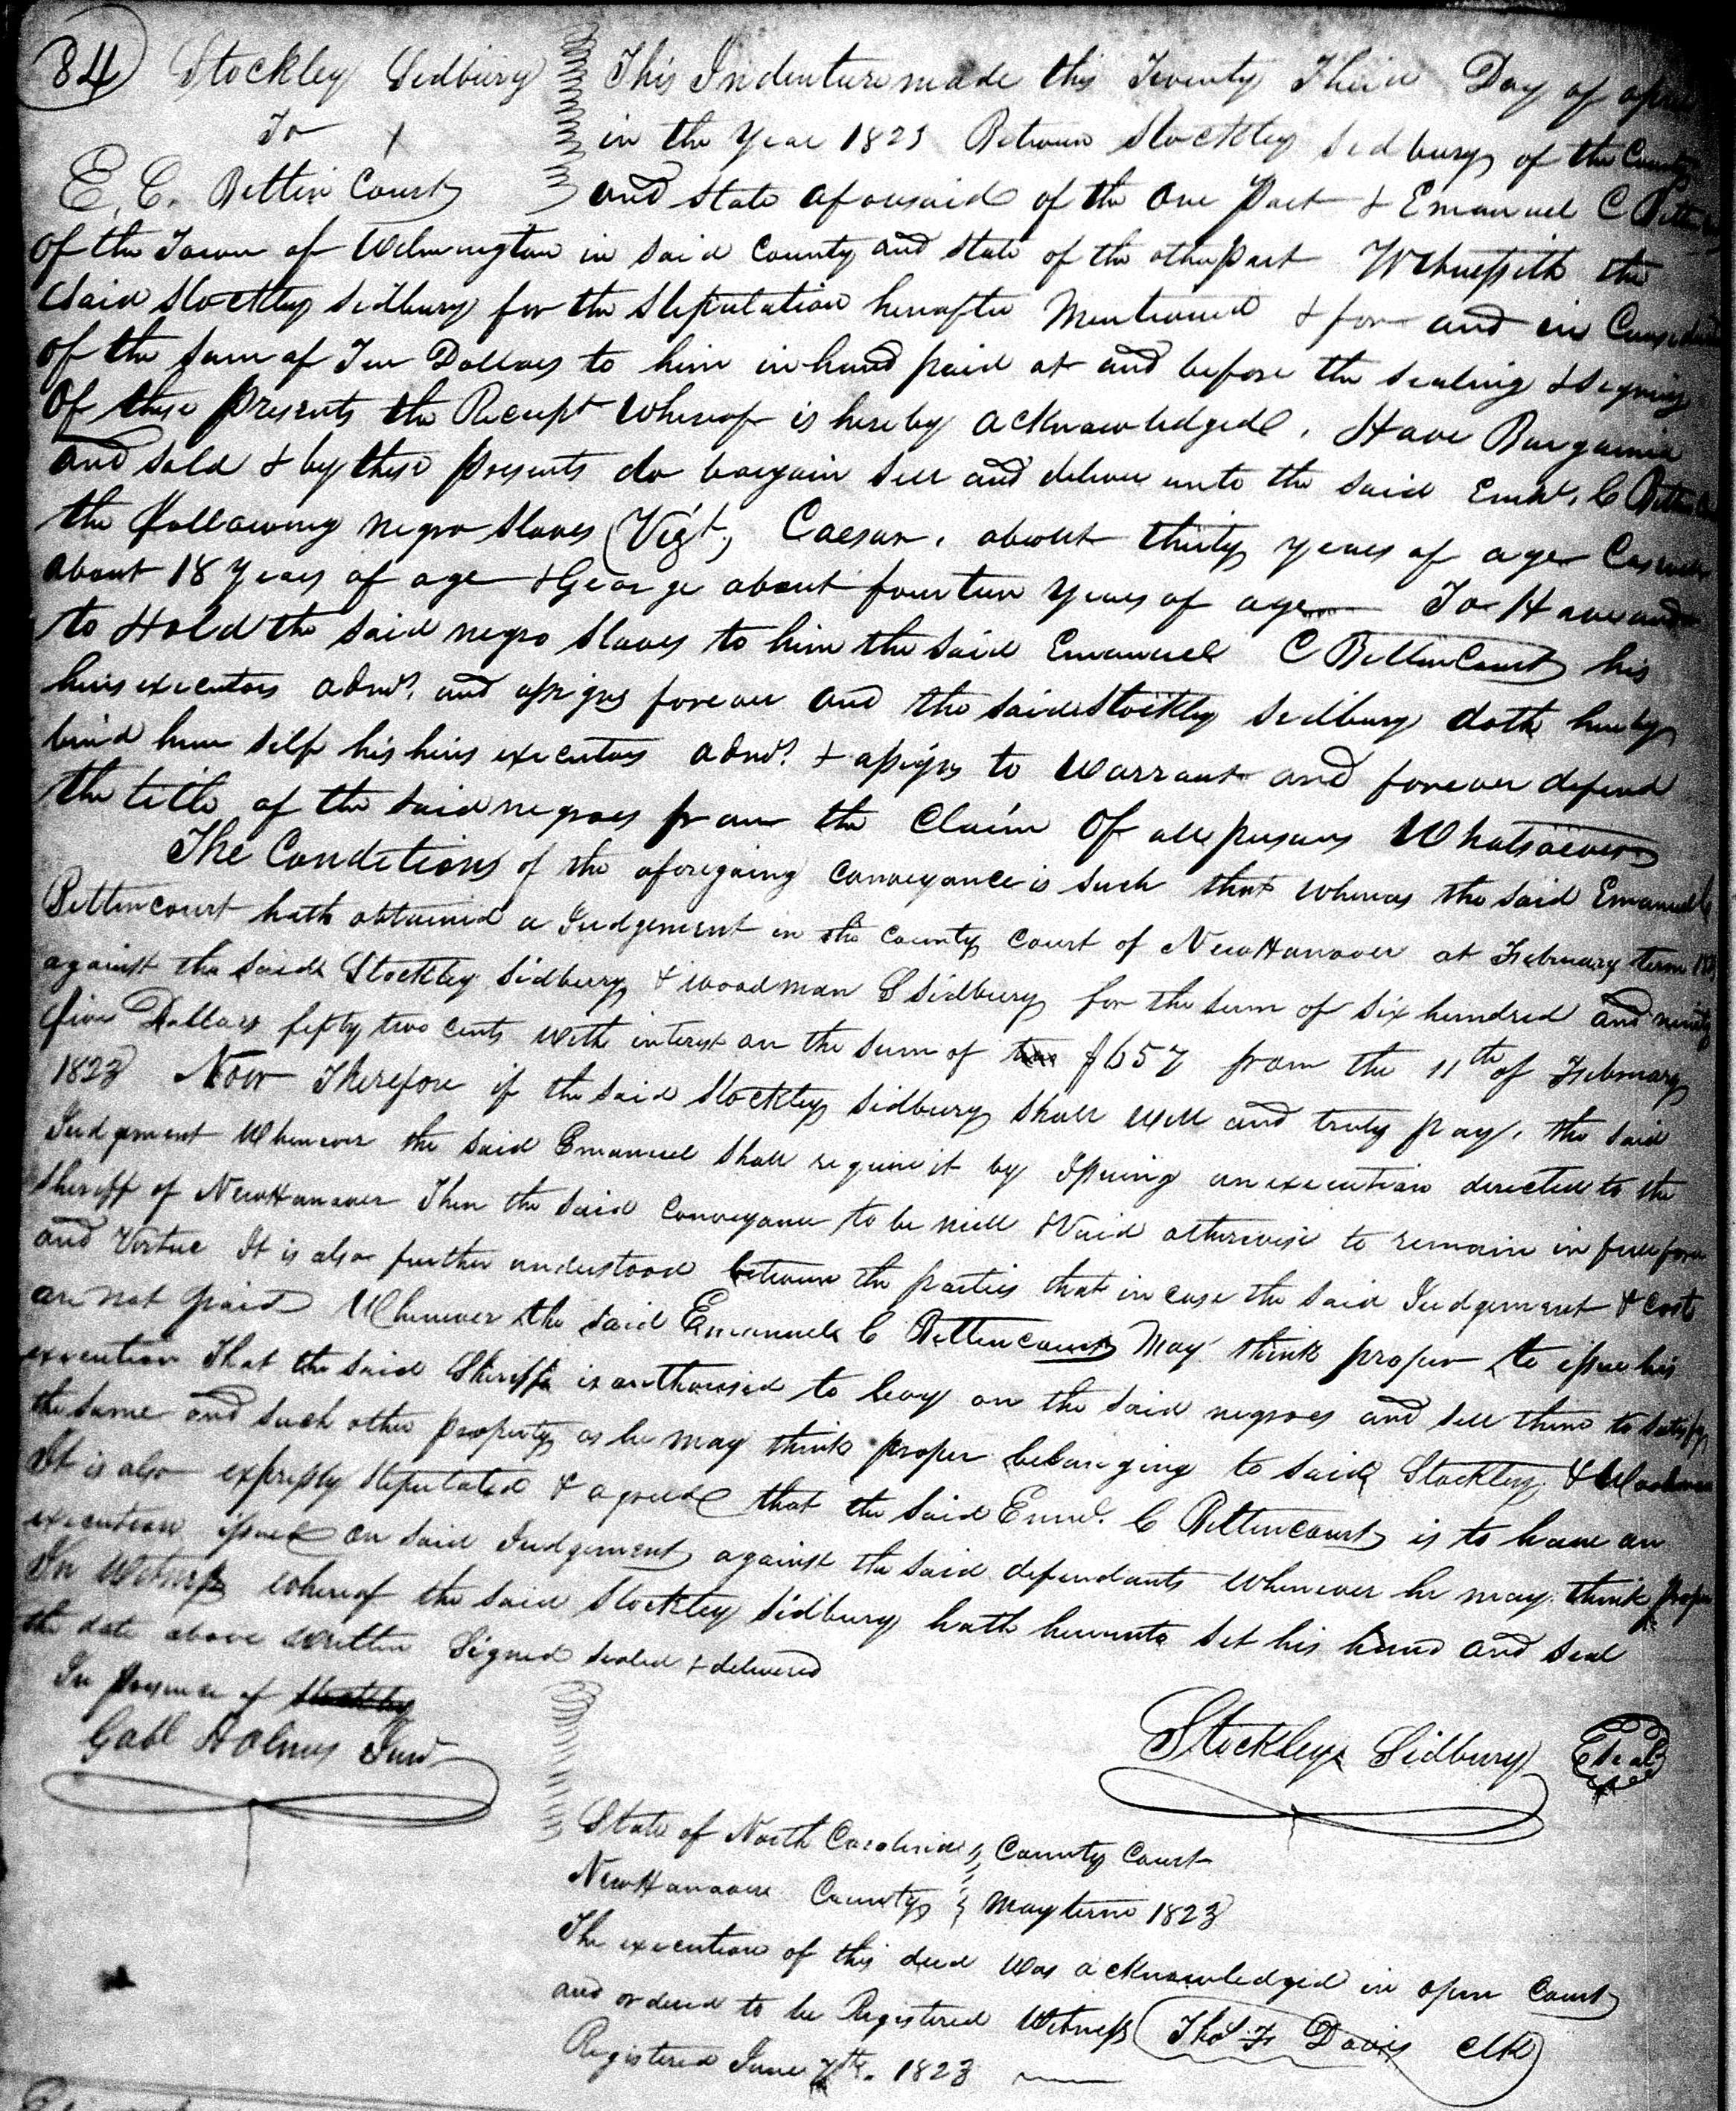 84 Stockley Sidbury This Indenture made this Twenty Third Day of
To in the Year 1823 Between Stockley Sidbury of the County
E. C. Bettin Court and State aforesaid of the one Part & Emanuel C
of the Town of Wilmington in said County and State of the other Part Witnesseth the
Said Stockley Sidbury for the Stipulation hereafter Mentioned & for and in
of the sum of Ten Dollars to him in hand paid at and before the sealing & signing
Of these presents the Receipt Whereof is hereby acknowledged. Have Bargained
and sold & by these presents do bargain sell and deliver unto the said Eml. C
the following negro Slaves (Vizt, Caesar. about thirty years of age
about 18 years of age & George about fourteen years of age To Have and
to Hold the said negro Slaves to him the said Emanuel C BettenCourt his
heirs executors admrs. and assigns forever and the said Stockley Sidbury doth hereby
bind him self his heirs executors admrs. & assigns to Warrant and forever defend
the title of the said negroes from the Claim Of all persons Whatsoever
The Conditions of the aforegoing conveyance is such that whereas the said Emanuel C
Bettincourt hath obtained a Judgement in the county court of New Hanover at February term
against the said Stockley Sidbury & woodman S Sidbury for the sum of six hundred and ninety
five Dollars fifty two cents with interest on the sum of $657 from the 11th of February
1823 Now Therefore if the said Stockley Sidbury shall well and truly pay, the said
Judgment Whenever the said Emanuel shall require it by Issuing an execution directed to the
Sheriff of New Hanover Then the said conveyance to be null & Void otherwise to remain in full force
and Vertue It is also further understood between the parties that in case the said Judgement & cost
are not paid Whenever the said Emanuel C Bettencourt May think proper to issue his
execution That the said Sheriff is authorised to levy on the said negroes and sell them to satisfy
the same and such other property as he may think proper belonging to said Stockley &
It is also expressly stipulated & agreed that the said Eml. C Bettencourt is to have an
execution issued on said Judgement against the said defendants Whenever he may think proper
In Witness whereof the said Stockley Sidbury hath hereunto set his hand and seal
the date above written Signed sealed & delivered
In presence of
Gabl Holmes Junr
Stockley Sidbury Seal
State of North Carolina County Court
New Hanover County May term 1823
The execution of this deed was acknowledged in open Court
and ordered to be Registered Witness Thos F Davis Clk
Registered June 7th. 1823